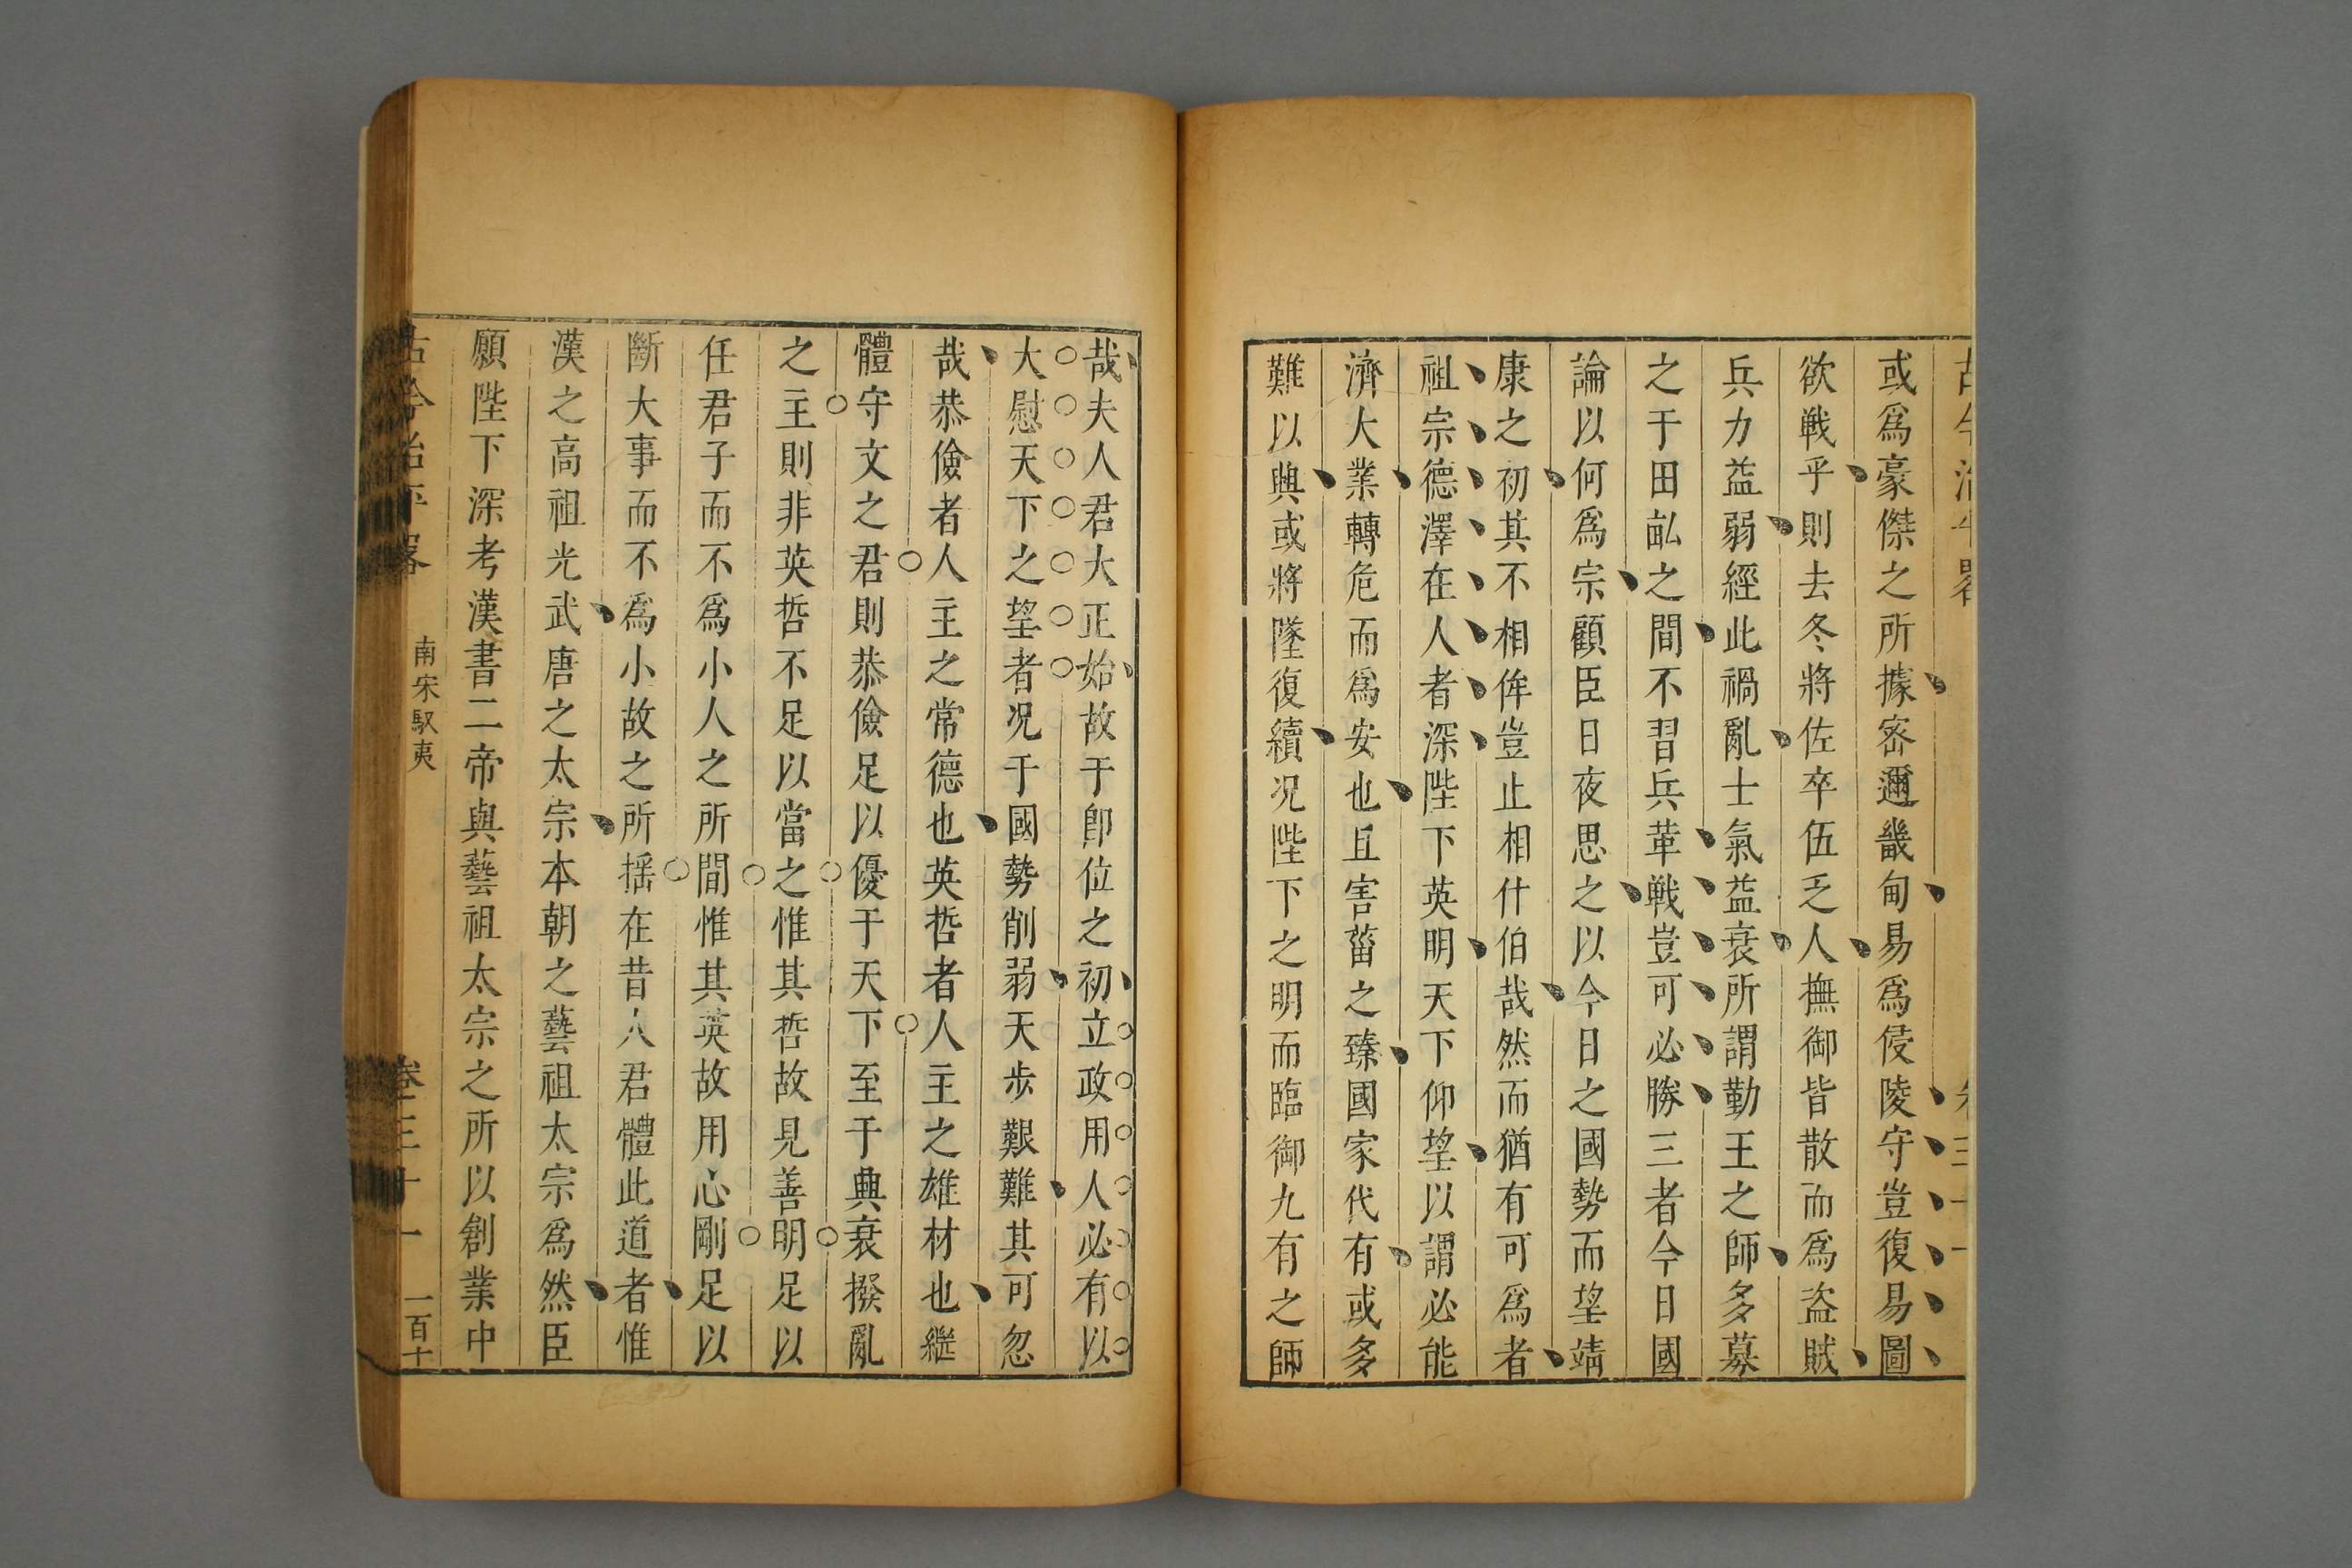 或爲豪傑之所據密邇畿甸易爲侵陵守豈復易圖
欲戰乎則去冬將佐卒伍乏人撫御皆散而爲盜賊
兵力益弱經此禍亂士氣益衰所謂勤王之師多募
之于田畝之間不習兵革戰豈可必勝三者今日國
論以何爲宗顧臣日夜思之以今日之國勢而望靖
康之初其不相侔豈止相什伯哉然而猶有可爲者
祖宗德澤在人者深陛下英明天下仰望以謂必能
濟大業轉危而爲安也且害菑之臻國家代有或多
難以興或將墜復續况陛下之明而臨御九有之師
哉夫人君大正始故于即位之初立政用人必有以
大慰天下之望者况于國勢削弱天步艱難其可忽
哉恭儉者人主之常德也英哲者人主之雄材也繼
體守文之君則恭儉足以優于天下至于典衰撥亂
之主則非英哲不足以當之惟其哲故見善明足以
任君子而不爲小人之所間惟其英故用心剛足以
斷大事而不爲小故之所揺在昔人君體此道者惟
漢之高祖光武唐之太宗本朝之藝祖太宗爲然臣
願陛下深考漢書二帝與藝祖太宗之所以創業中
古今治平畧 南宋馭夷 卷三十一 一百十